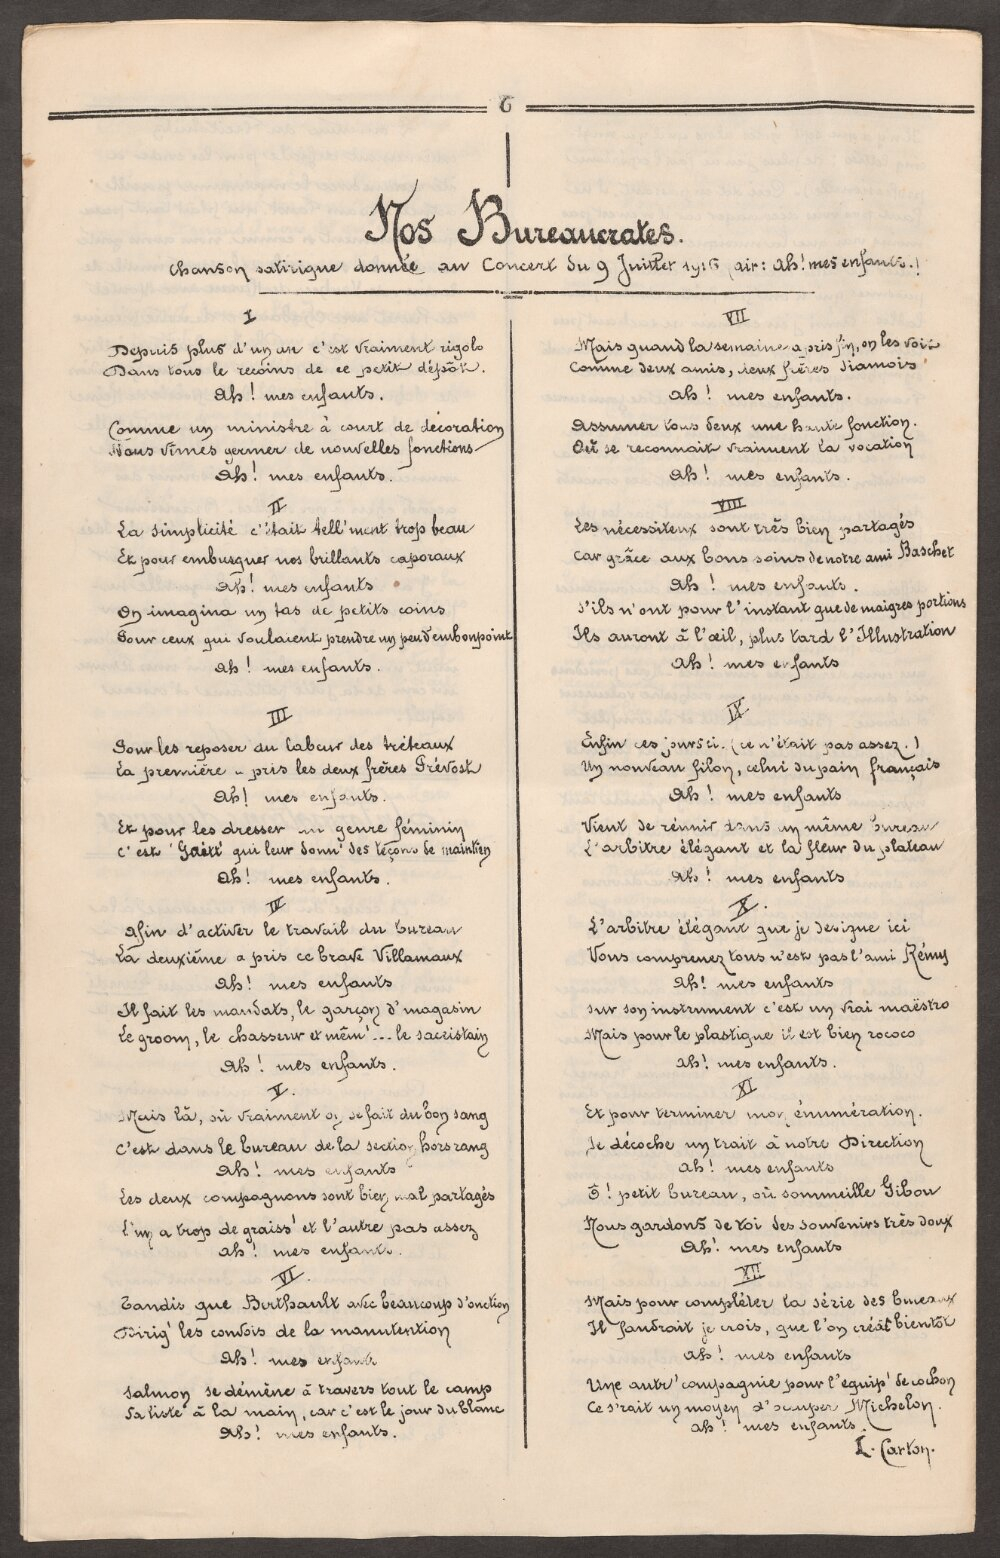 6
Nos Bureaucrates.
Chanson satirique donnée au Concert du 9 Juillet 1916 (air: Ah! mes enfants.!
I
Depuis plus d'un an c'est vraiment rigolo
Dans tous le recoins de ce petit dépôt.
Ah! mes enfants.
Comme un ministre à court de décoration
Nous vîmes germer de nouvelles fonctions
Ah! mes enfants.
II
La simplicité c'était tell'ment trop beau
Et pour embusquer nos brillants caporaux
Ah! mes enfants
On imagina un tas de petits coins
Pour ceux qui voulaient prendre un peu d'embonpoint
Ah! mes enfants.
III
Pour les reposer du labeur des tréteaux
La première a pris les deux frères Prévost
Ah! mes enfants.
Et pour les dresser au genre féminin
C'est Gaëtt' qui leur donn' des leçons de maintien
Ah! mes enfants.
IV
Afin d'activer le travail du bureau
La deuxième a pris ce brave Villamaux
Ah! mes enfants
Il fait les mandats, le garçon d'magasin
Le groom, le chasseur et mêm'... le sacristain
Ah! mes enfants.
V.
Mais là, où vraiment on se fait du bon sang
C'est dans le bureau de la section hors rang
Ah! mes enfants
Les deux compagnons sont bien mal partagés
L'un a trop de graiss' et l'autre pas assez
ah! mes enfants.
VI.
Tandis que Berthault avec beaucoup d'onction
Dirig' les convois de la manutention
Ah! mes enfants
Salmon se démène à travers tout le camp
Sa liste à la main, car c'est le jour du blanc
Ah! mes enfants.
VII
Mais quand la semaine a pris fin, on les voit
Comme deux amis, deux frères siamois
Ah! mes enfants.
Assumer tous deux une haute fonction.
Où se reconnait vraiment la vocation
Ah! mes enfants.
VIII
Les nécessiteux sont très bien partagés
Car grâce aux bons soins de notre ami Baschet
Ah! mes enfants.
S'ils n'ont pour l'instant que de maigres portions
Ils auront à l'œil, plus tard l'Illustration
Ah! mes enfants
IX
Enfin ces jours ci. (ce n'était pas assez.)
Un nouveau filon, celui du pain français
Ah! mes enfants
Vient de réunir dans un même bureau
L'arbitre élégant et la fleur du plateau
Ah! mes enfants
X.
L'arbitre élégant que je désigne ici
Vous comprenez tous n'est pas l'ami Rémy
Ah! mes enfants
Sur son instrument c'est un vrai maëstro
Mais pour le plastique il est bien rococo
Ah! mes enfants.
XI
Et pour terminer mon énumération.
Je décoche un trait à notre Direction
ah! mes enfants
Ô! petit bureau, où sommeille Gibou
Nous gardons de toi des souvenirs très doux
Ah! mes enfants
XII
Mais pour compléter la série des bureaux
Il faudrait je crois, que l'on créât bientôt
Ah! mes enfants
Une autr' compagnie pour l'équip' de cochon
Ce s'rait un moyen d'occuper Michelon.
ah! mes enfants.
L. Carton.